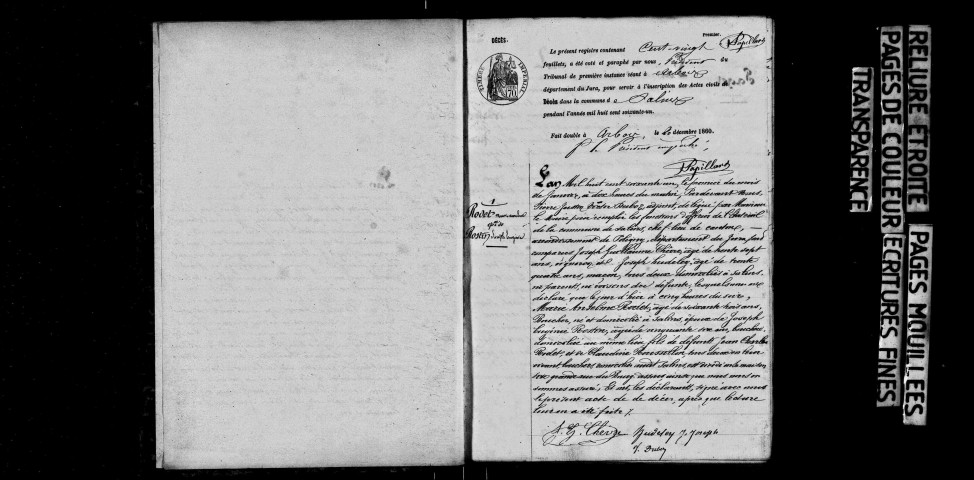 Premier.
Papillard
DÉCÈS.
TIMBRE IMPÉRIAL
70
Le présent registre contenant Cent vingt
feuillets, a été coté et paraphé par nous, Président du
Tribunal de première instance séant à Arbois
département du Jura, pour servir à l'inscription des Actes civils de
Décès dans la commune de Salins
pendant l'année mil huit cent soixante-un.
Fait double à Arbois, le 20 décembre 1860.
P. le Président empêché,
Papillard
L'an Mil huit cent soixante un, le premier du mois
de Janvier, à dix heures du matin, Pardevant Nous,
Pierre adjoint, délégué par Monsieur
le Maire pour remplir les fonctions d'officier de l'Etat civil
de la commune de Salins, chef lieu de canton,
arrondissement de Poligny, département du Jura, sont
comparus Joseph Guillaume âgé de trente sept
ans, et Joseph âgé de trente
quatre ans, maçon, tous deux domiciliés à Salins,
ni parents, ni voisins du défunt, lesquels nous ont
déclaré que le jour d'hier à cinq heures du soir,
Marie Anselme Rodet, âgé de soixante trois ans,
Boucher, né et domicilié à Salins, époux de Joseph
Eugénie âgée de cinquante six ans, bouchère,
domiciliée au même lieu, fils de défunts Jean Charles
Rodet et de Claudine tous deux en leur
vivant bouchers, domiciliés audit Salins, est décédé en la maison
sise grande rue ainsi que nous nous en
sommes assuré; Et ont, les déclarants, signé avec nous
le présent acte de décès, après que lecture
leur en a été faite.
1
Rodet
Joseph
RELIURE ETROITE
PAGES DE COULEUR
ECRITURES FINES
PAGES MOUILLEES
TRANSPARENCE